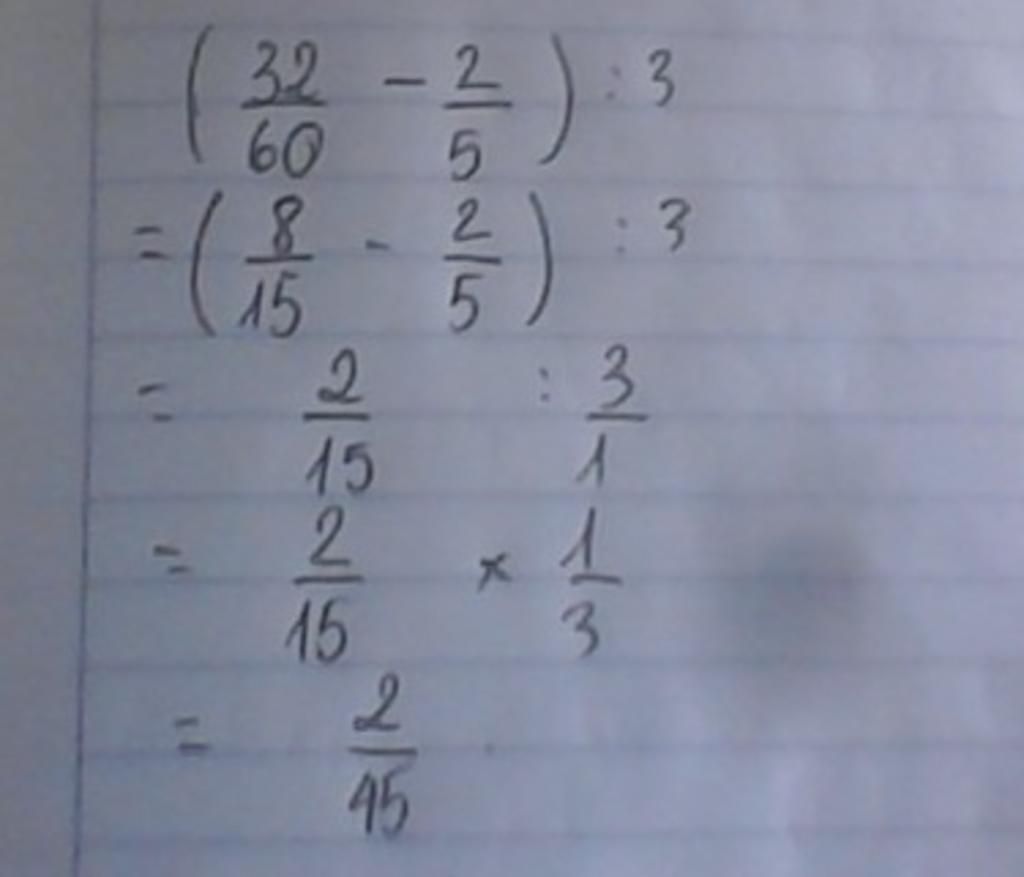 (32/60 - 2/5) : 3
= (8/15 - 2/5) : 3
= 2/15 : 3/1
= 2/15 × 1/3
= 2/45